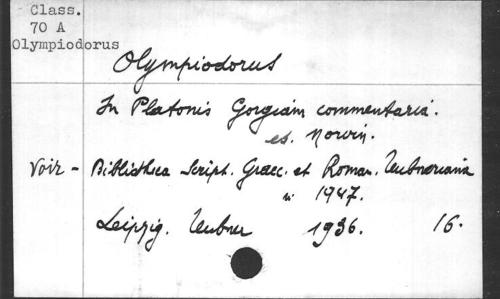 Class.
70 A
Olympiodorus
Olympiodorus
In Platonis Gorgiam commentaria.
ed. Norvin.
Voir - Bibliotheca Script. Graec. et Roman. Teubneriana
n: 1947.
Leipzig. Teubner 1936. 16.